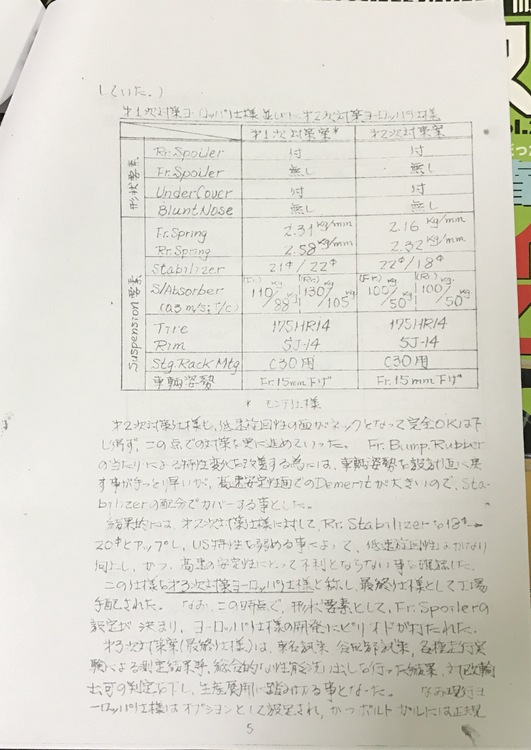 していた。)
才1次対策ヨーロッパ仕様並びに才2次対策ヨーロッパ仕様
才1次対策案* 才2次対策案
形状要素
Rr.Spoiler 付 付
Fr.Spoiler 無し 無し
UnderCover 付 付
BluntNose 無し 無し
Suspension要素
Fr.Spring 2.31 kg/mm 2.16 kg/mm
Rr.Spring 2.58 kg/mm 2.32 kg/mm
Stabilizer 21φ/22φ 22φ/18φ
S/Absorber (Fr) 110/88 kg (Rr) 130/105 kg (Fr) 100/50 kg (Rr) 100/50 kg
(0.3 m/s; T/C)
Tire 175HR14 175HR14
Rim 5J-14 5J-14
Stg.Rack Mtg C30用 C30用
車輌姿勢 Fr.15mm下げ Fr.15mm下げ
* モンテ仕様
才2次対策仕様も、低速旋回性の面がネックとなって完全OKは下
し得ず、この点での対策を更に進めていった。 Fr.Bump.Rubber
の当たりによる特性変化を改善する為には、車輌姿勢を設計値に戻
す事がてっとり早いが、高速安定性面でのDemeritが大きいので、Sta-
bilizerの配分でカバーする事とした。
結果的には、才2次対策仕様に対して、Rr.Stabilizerを18φ→
20φとアップし、US特性を弱める事によって、低速旋回性はかなり
向上し、かつ、高速の安定性にとって不利とならない事を確認した。
この仕様を才3次対策ヨーロッパ仕様と称し、最終仕様として工場
手配された。 なお、この時点で、形状要素として、Fr.Spoilerの
設定が決まり、ヨーロッパ仕様の開発にピリオドが打たれた。
才3次対策案(最終仕様)は、 各種走行実
験による測定結果等、総合的な性能洗い出しを行った結果、対欧輸
出可の判定を下し、生産 に踏みきる事となった。 なお現行ヨ
ーロッパ仕様はオプションとして設定され、かつポルトガルには正規
5